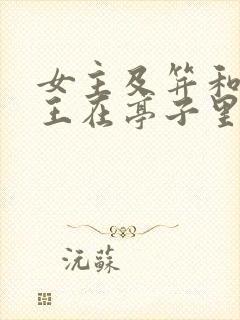 女主及笄和
王在亭子里
沅蘇